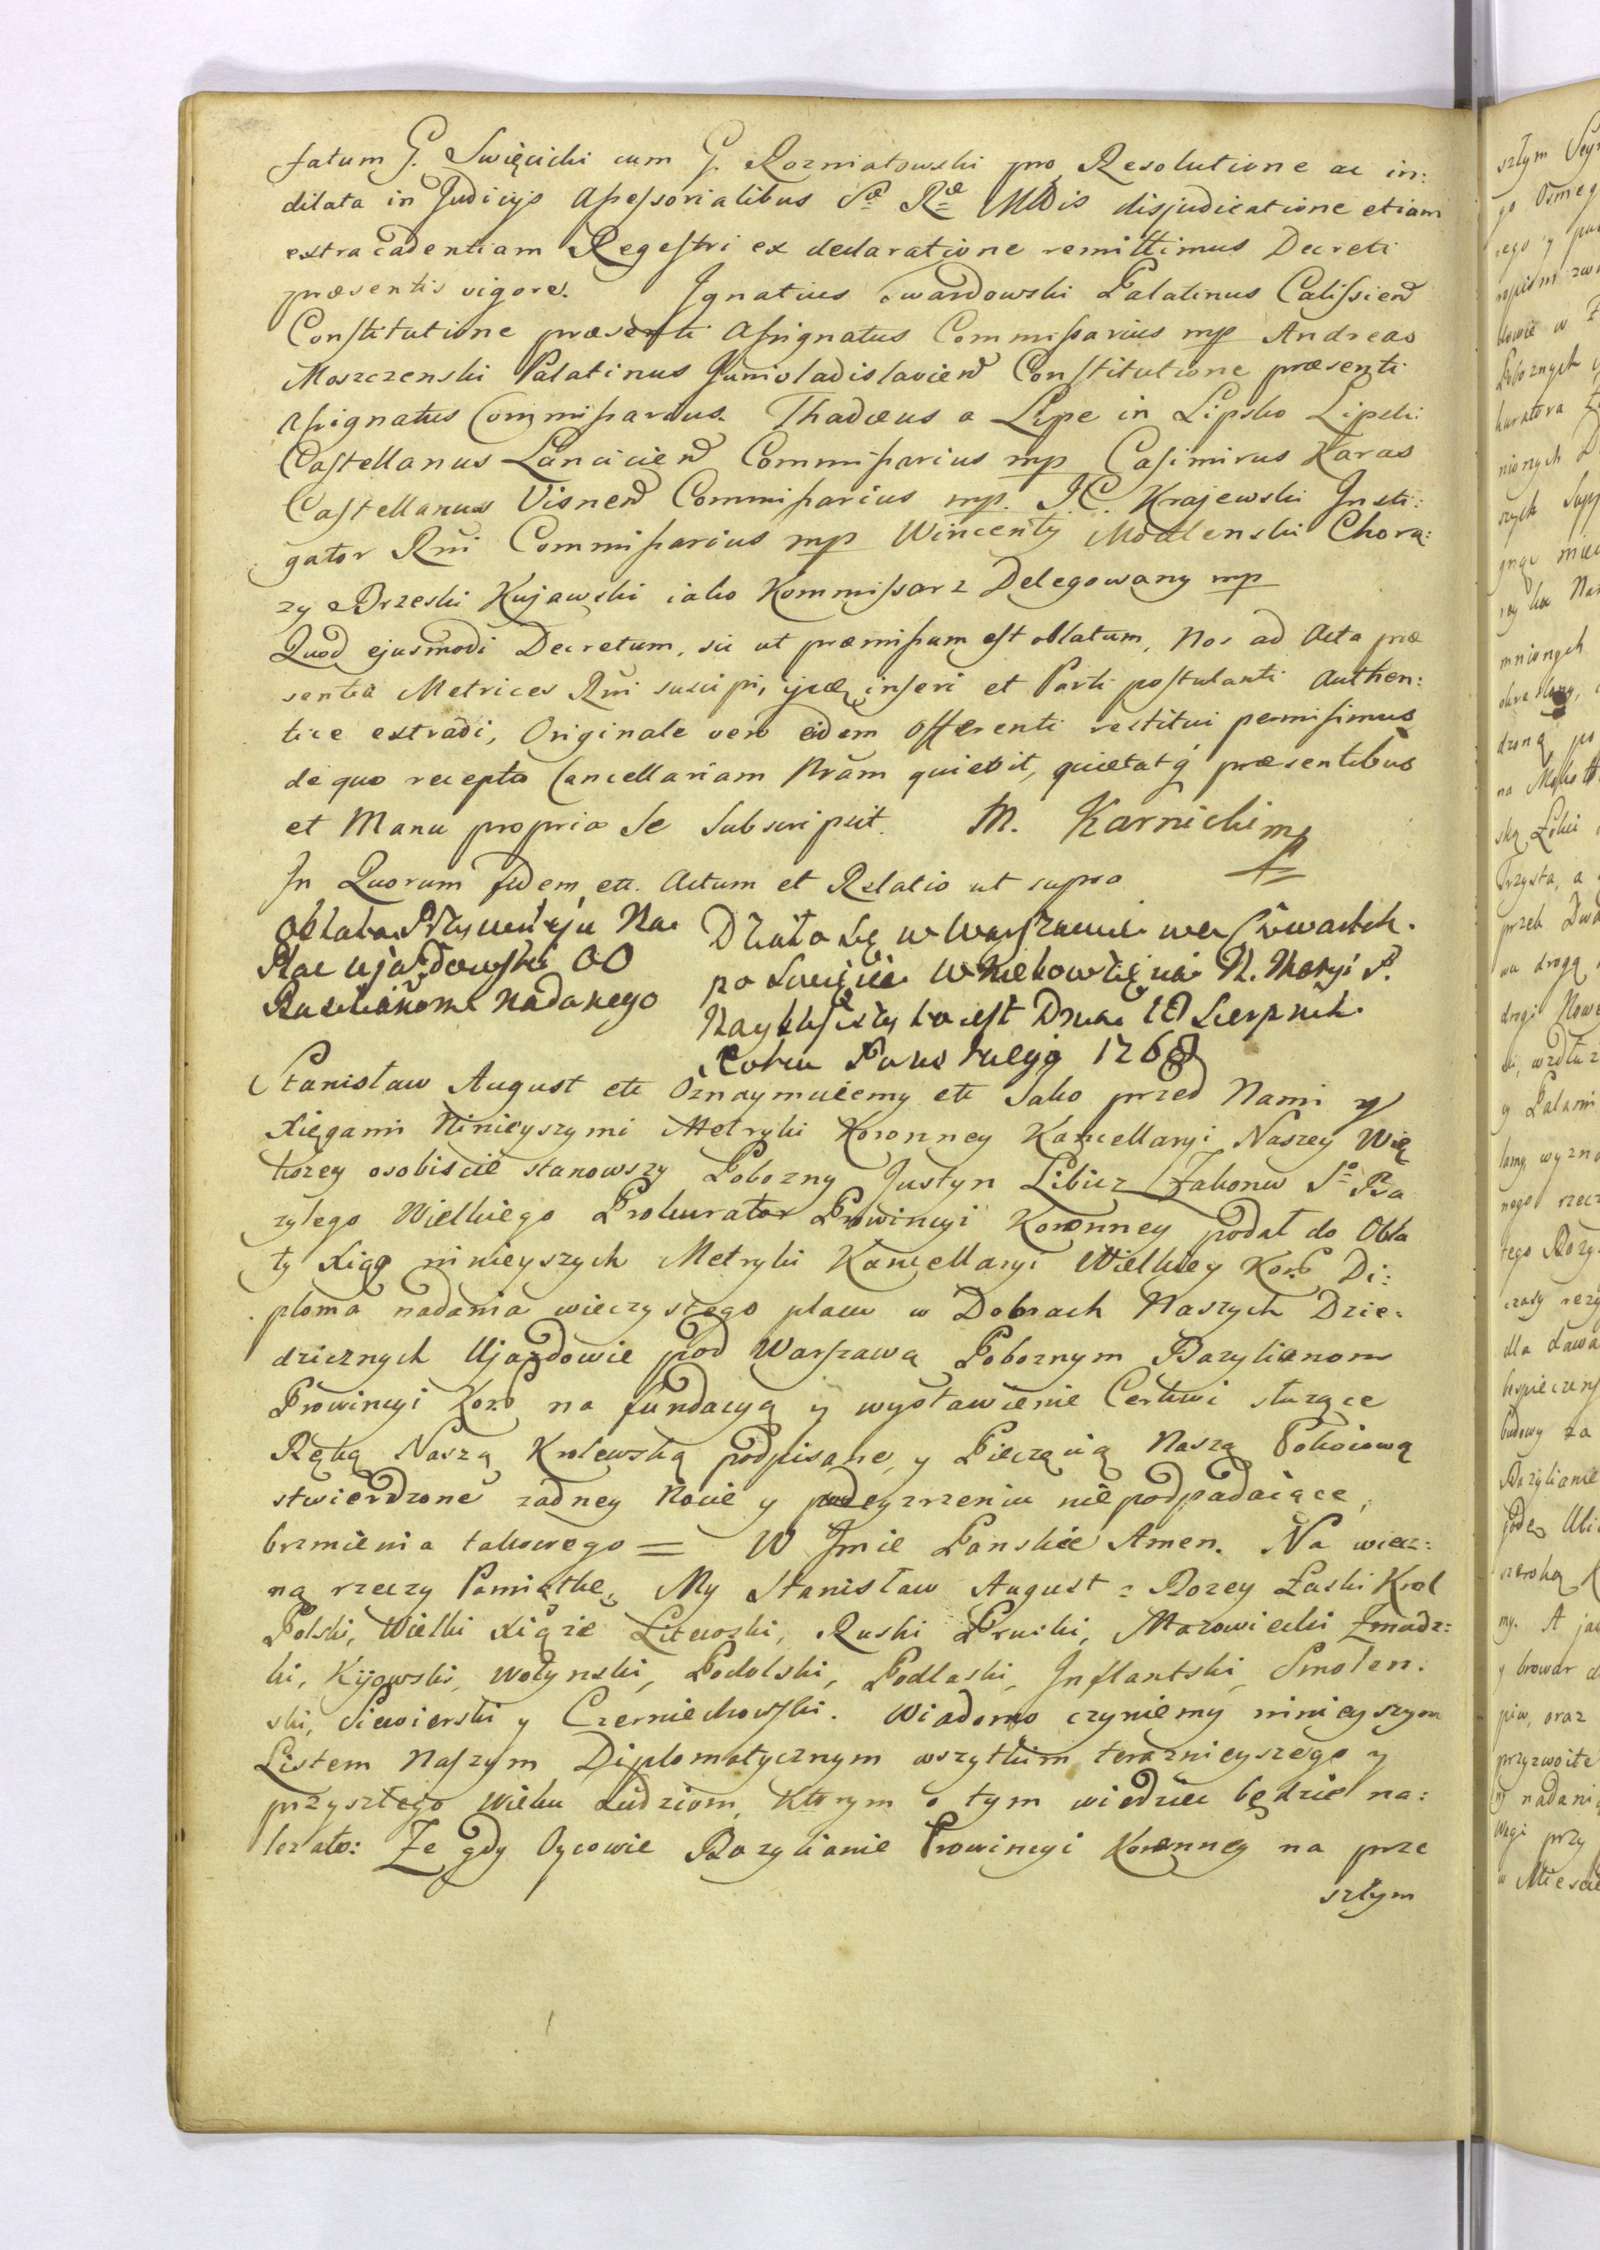 satum G. Swięcicki cum G. Rozniatowski pro Resolutione ac in:
dilata in Judicijs Assessorialibus Sæ Ræ Mttis disjudicatione etiam
extra cadentiam Regestri ex declaratione remittimus Decreti
præsentis vigore. Ignatius Twardowski Palatinus Calissien
Constitutione præsenti Assignatus Commissarius mp Andreas
Moszczenski Palatinus Junivladislavien Constitutione præsenti
assignatus Commissarius. Thadæus a Lipe in Lipsko Lipski
Castellanus Lancicien Commissarius mp Casimirus Karas
Castellanus Visnen Commissarius mp. J.C. Krajewski Insti:
gator Rni Commissarius mp Wincenty Modlenski Chorą:
ży Brzeski Kujawski iako Kommissarz Delegowany mp
Quod ejusmodi Decretum, sic ut præmissum est oblatum, Nos ad Acta præ
sentia Metrices Rni suscipi, ijsq inseri et Parti postulanti Authen:
tice extradi, Originale vero eidem Offerenti restitui permisimus
de quo recepto Cancellariam Nram quietavit, quietatq præsentibus
et Manu propria Se Subscripsit. M. Karnicki mp
In Quorum fidem etc. Actum et Relatio ut supra
Oblata Przywileju Na
Plac Ujazdowski OO
Bazilianom Nadanego
Działo się w Warszawie we Czwartek
po Święcie Wniebowzięcia N. Maryi P.
Nayswiętszey to iest Dnia 18 Sierpnia
Roku Panskiego 1768
Stanisław August etc Oznaymuiemy etc Jako przed Nami y
Xięgami Ninieyszymi Metryki Koronney Kancellaryi Naszey Wię
kszey osobiscie stanowszy Pobozny Justyn Libicz Zakonu So Ba
zylego Wielkiego Prokurator Prowincyi Koronney podał do Obla
ty Xiąg ninieyszych Metryki Kancellaryi Wielkiey Kor Di:
ploma nadania wieczystego placu w Dobrach Naszych Dzie:
dzicznych Ujazdowie pod Warszawą Poboznym Bazylianom
Prowincyi Kor na fundacyą y wystawienie Cerkwi służące
Ręką Naszą Krolewską podpisane, y Pieczęcią Naszą Pokoiową
stwierdzone zadney Nocie y podeyzrzeniu niepodpadaiące,
brzmienia takowego = W Jmie Panskie Amen. Na wiecz:
ną rzeczy Pamiątkę, My Stanisław August z Bozey Łaski Krol
Polski, Wielki Xiąże Litewski, Ruski Pruski, Mazowiecki Zmudz:
ki, Kijowski, Wołynski, Podolski, Podlaski, Inflantski, Smolen:
ski, Siewierski y Czerniechowski. Wiadomo czyniemy ninieyszym
Listem Naszym Diplomatycznym wszytkim teraznieyszego y
przyszłego wieku Ludziom, Ktorym o tym wiedziec będzie na:
lezało: Ze gdy Oycowie Bazylianie Prowincyi Koronney na prze
szłym